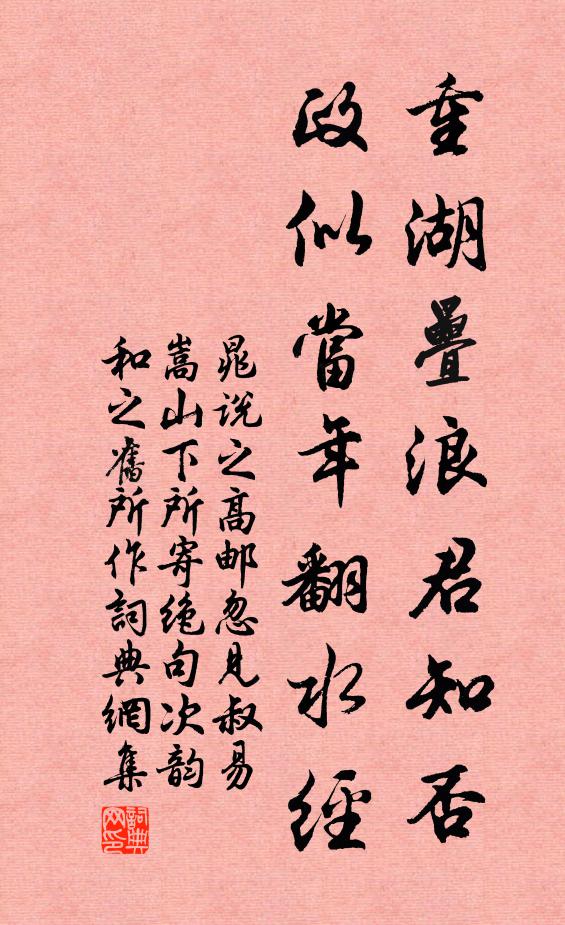 重湖疊浪君知否
政似當年翻水經
晁说之高邮忽见叔易
嵩山下所寄绝句次韵
和之舊所作詞典網集
詞典网印